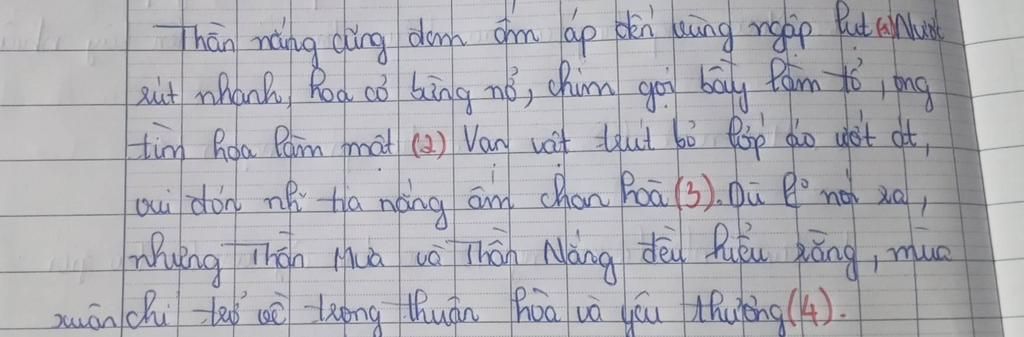 Thần nắng cũng đem ấm áp đến vùng ngập lụt (1) Nước
rút nhanh, hoa cỏ bừng nở, chim gọi bầy làm tổ, ong
tìm hoa làm mật (2) Vạn vật trút bỏ lớp áo ướt át,
vui đón nh tia nắng ấm chan hoà (3). Dù ở nơi xa,
nhưng Thần Mưa và Thần Nắng đều hiểu rằng, mùa
xuân chỉ trở về trong thuận hòa và yêu thương (4).